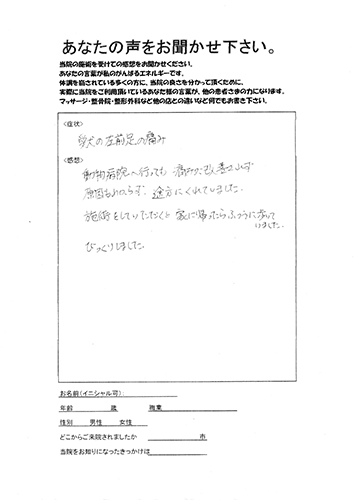 あなたの声をお聞かせ下さい。
当院の施術を受けての感想をお聞かせください。
あなたの言葉が私のがんばるエネルギーです。
体調を崩されている多くの方に、当院の良さを分かって頂くために、
実際に当院をご利用頂いているあなた様の言葉が、他の患者さまの力になります。
マッサージ・整骨院・整形外科など他の店との違いなど何でもお書き下さい。
<症状>
愛犬の左前足の痛み
<感想>
動物病院へ行っても痛みが改善せず
原因もわからず、途方にくれていました。
施術をしていただくと家に帰ったらふつうに歩いて
いました。
びっくりしました。
お名前(イニシャル可):
年齢 歳 職業
性別 男性 女性
どこからご来院されましたか 市
当院をお知りになったきっかけは